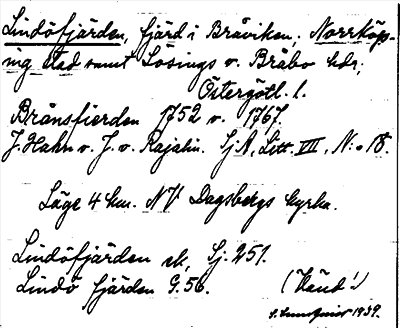 Lindöfjärden, fjärd i Bråviken, Norrköp-
ing stad samt Lösings o. Bråbo hdr,
Östergötl. l.
Bränsfierden 1752 o. 1767.
J. Hahn o. J. v. Rajalin. Sj A, Litt. VIII, N:o 18.
Läge 4 km. NV Dagsbergs kyrka.
Lindöfjärden ek, Sj. 251.
Lindö fjärden G. 56. (Känd!)
S. Lundqvist 1939.